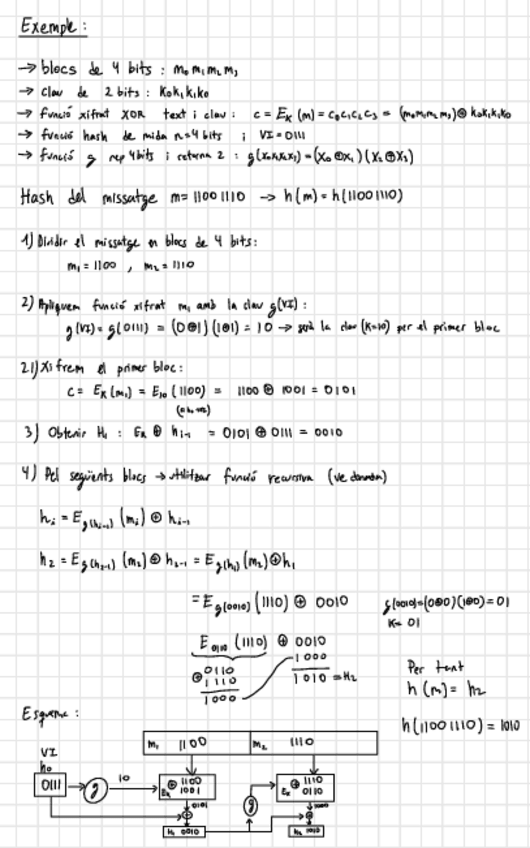 Exemple:
→ blocs de 4 bits: m₀m₁m₂m₃
→ clau de 2 bits: k₀k₁k₁k₀
→ funció xifrat XOR text i clau: c = Eₖ(m) = c₀c₁c₂c₃ = (m₀m₁m₂m₃)⊕k₀k₁k₁k₀
→ funció hash de mida n=4 bits i VI=0111
→ funció g rep 4bits i retorna 2: g(x₀x₁x₂x₃)=(x₀⊕x₁)(x₂⊕x₃)
Hash del missatge m=11001110 → h(m)=h(11001110)
1) Dividir el missatge en blocs de 4 bits:
m₁=1100, m₂=1110
2) Apliquem funció xifrat m₁ amb la clau g(VI):
g(VI)=g(0111)=(0⊕1)(1⊕1)=10→ serà la clau (K=10) per el primer bloc
2.1) Xifrem el primer bloc:
c = Eₖ(m₁) = E₁₀(1100) = 1100⊕1001=0101
3) Obtenir H₁: Eₖ⊕hᵢ₋₁ = 0101⊕0111=0010
4) Pel següents blocs → utilitzar funció recursiva (ve donada)
hᵢ = E_g(hᵢ₋₁)(mᵢ)⊕hᵢ₋₁
h₂ = E_g(h₂₋₁)(m₂)⊕h₂₋₁ = E_g(h₁)(m₂)⊕h₁
= E_g(0010)(1110)⊕0010 g(0010)=(0⊕0)(1⊕0)=01
K=01
E₀₁₁₀(1110)⊕0010
⊕0110
1110
1000
1000
1010=H₂
Per tant
h(m)=h₂
h(11001110)=1010
Esquema:
m₁ 1100 m₂ 1110
VI
h₀
0111
g
10
⊕ 1100
Eₖ 1001
0101
⊕
H₁ 0010
g
Eₖ ⊕ 1110
0110
1000
⊕
H₂ 1010